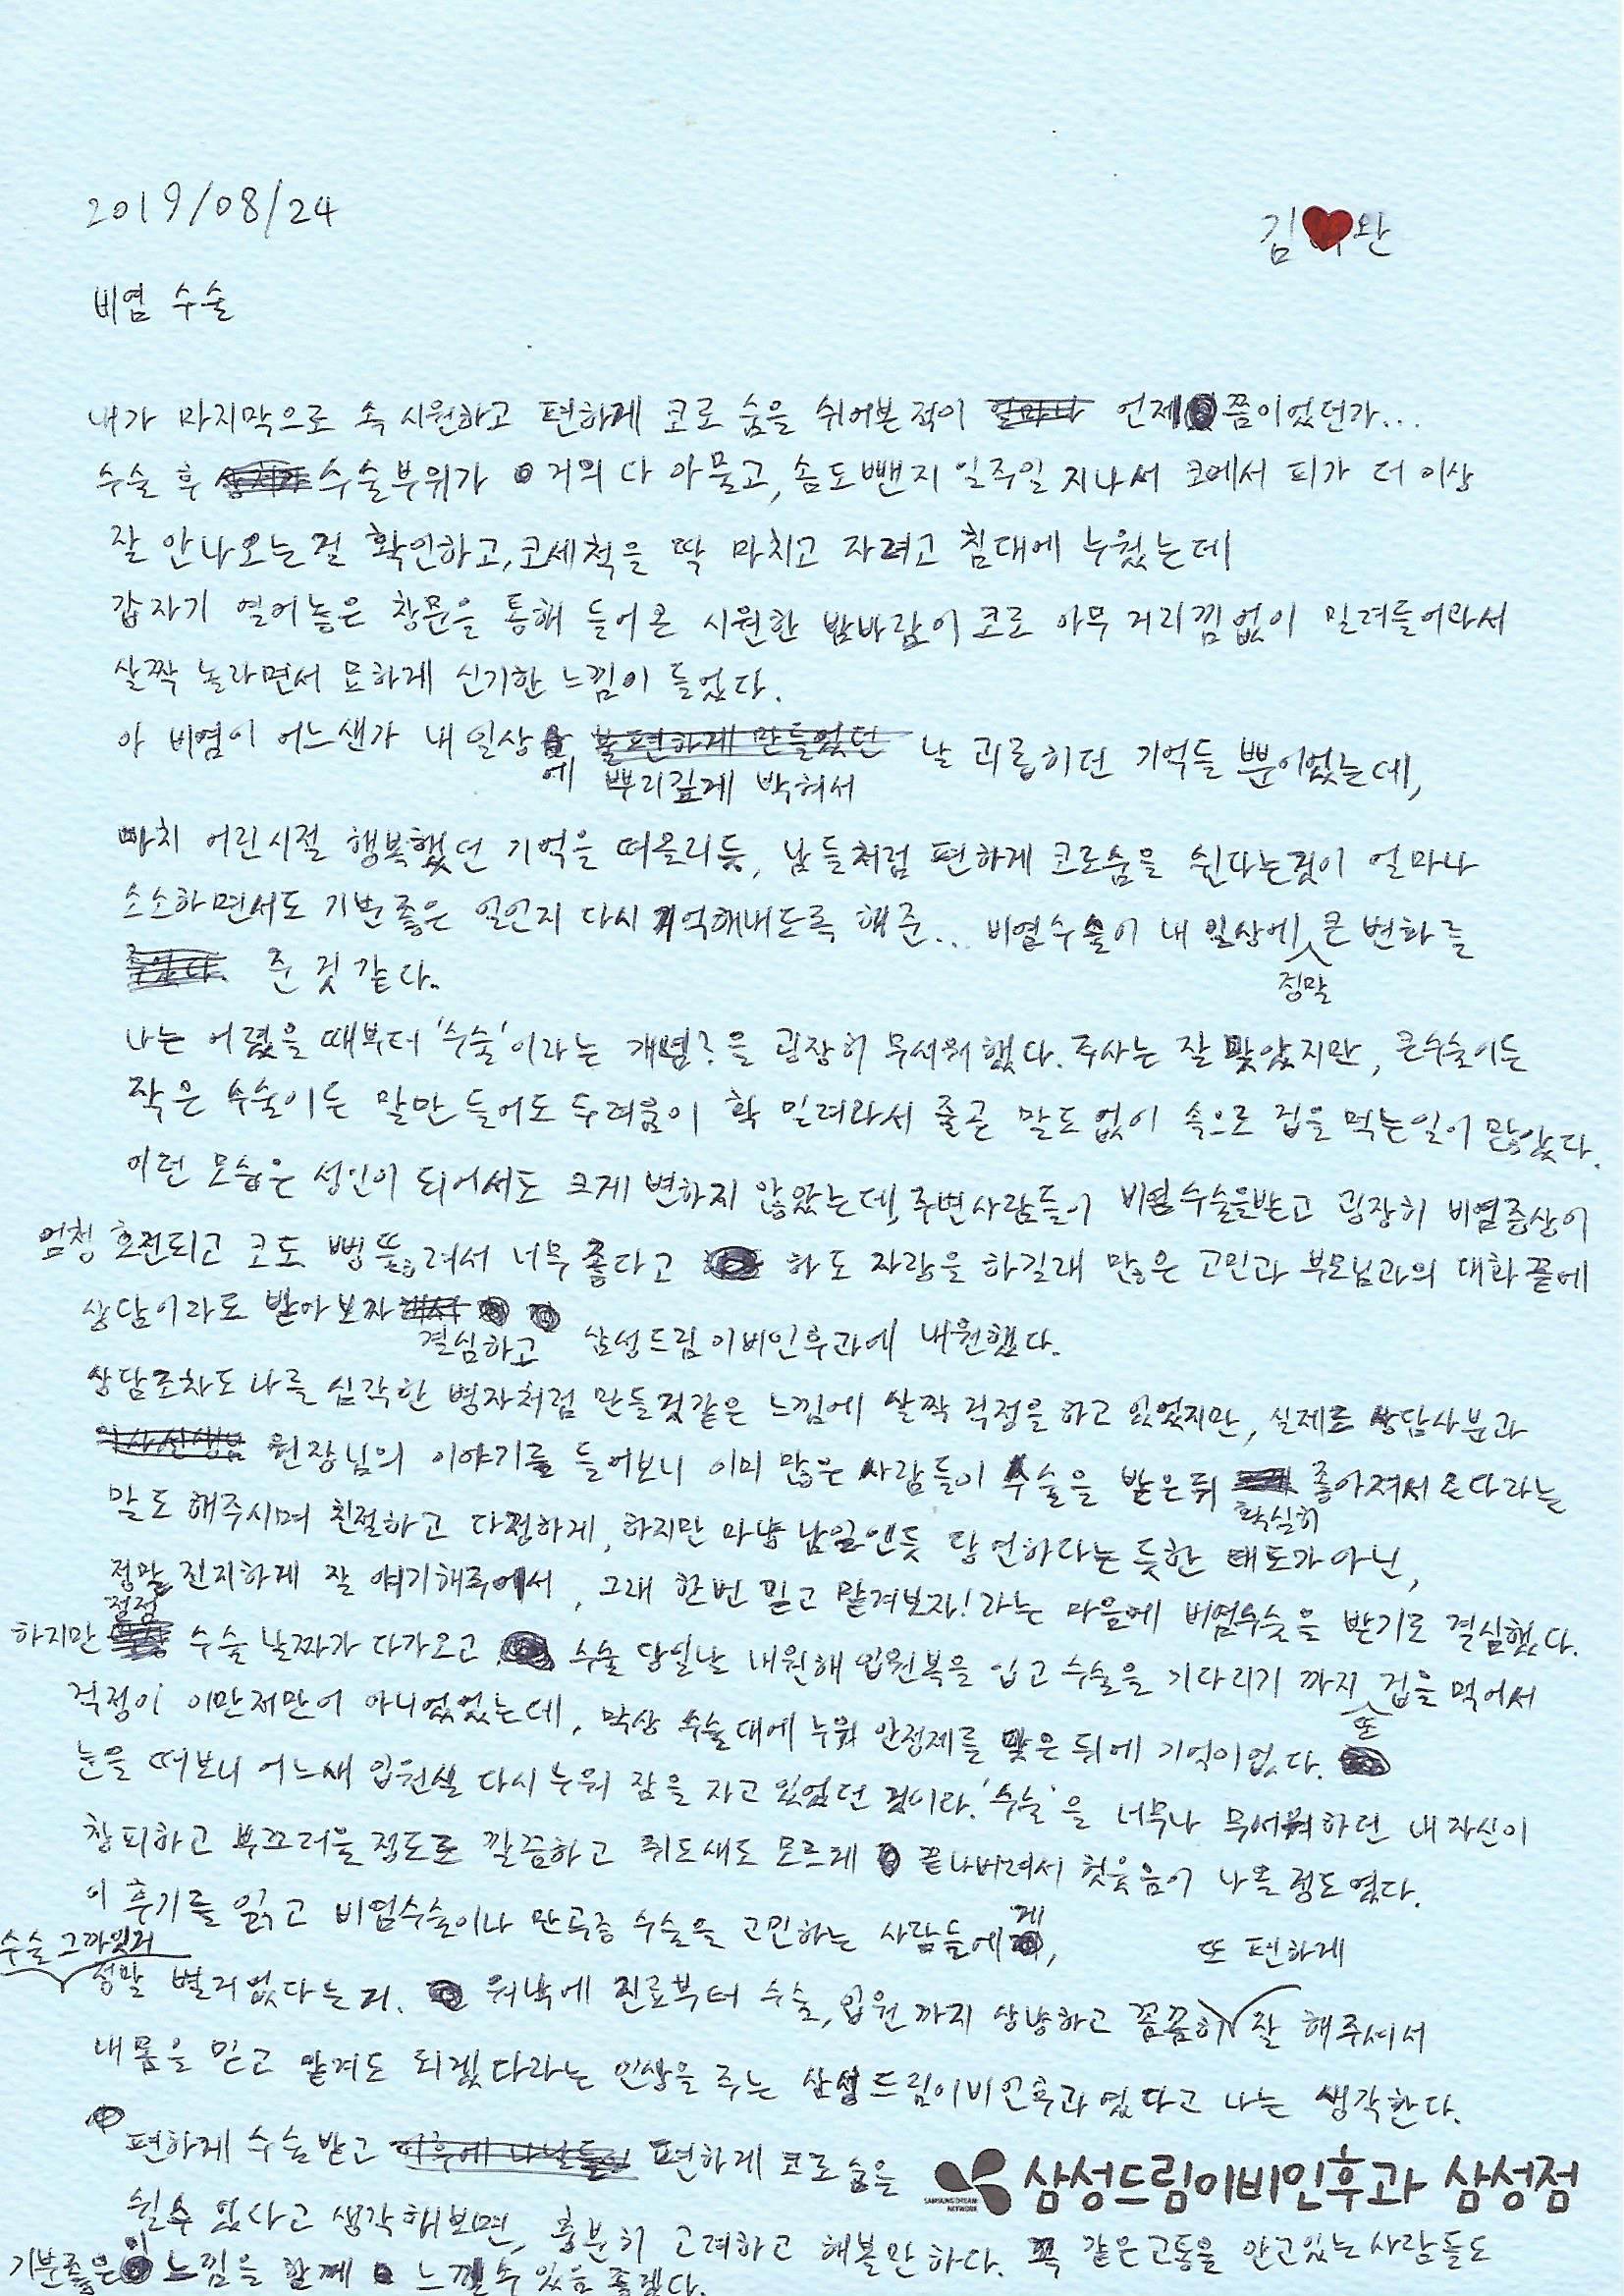 2019/08/24
김 완
비염 수술
내가 마지막으로 속 시원하고 편하게 코로 숨을 쉬어본적이 언제쯤이었던가...
수술 후 수술부위가 거의 다 아물고, 솜도뺀지 일주일 지나서 코에서 피가 더 이상
잘 안나오는걸 확인하고, 코세척을 딱 마치고 자려고 침대에 누웠는데
갑자기 열어놓은 창문을 통해 들어온 시원한 밤바람이 코로 아무 거리낌없이 밀려들어와서
살짝 놀라면서 묘하게 신기한 느낌이 들었다.
아 비염이 어느샌가 내 일상에 뿌리깊게 박혀서 날 괴롭히던 기억들 뿐이었는데,
마치 어린시절 행복했던 기억을 떠올리듯, 남들처럼 편하게 코로숨을 쉰다는것이 얼마나
소소하면서도 기분좋은 일인지 다시 기억해내도록 해준... 비염수술이 내 일상에 정말 큰 변화를
준 것 같다.
나는 어렸을 때부터 '수술'이라는 개념?을 굉장히 무서워했다. 주사는 잘 맞았지만, 큰수술이든
작은 수술이든 말만 들어도 두려움이 확 밀려와서 줄곧 말도없이 속으로 겁을 먹는일이 많았다.
이런 모습은 성인이 되어서도 크게 변하지 않았는데, 주변사람들이 비염수술을받고 굉장히 비염증상이
엄청 호전되고 코도 뻥뚫려서 너무 좋다고 하도 자랑을 하길래 많은 고민과 부모님과의 대화끝에
상담이라도 받아보자 결심하고 삼성드림이비인후과에 내원했다.
상담조차도 나를 심각한 병자처럼 만들것같은 느낌에 살짝 걱정을 하고 있었지만, 실제로 상담사분과
원장님의 이야기를 들어보니 이미 많은 사람들이 수술을 받은뒤 확실히 좋아져서 온다라는
말도 해주시며 친절하고 다정하게, 하지만 마냥 남일인듯 당연하다는 듯한 태도가 아닌,
정말 진지하게 잘 얘기해주어서, 그래 한번 믿고 맡겨보자! 라는 마음에 비염수술을 받기로 결심했다.
하지만 점점 수술 날짜가 다가오고 수술 당일날 내원해 입원복을 입고 수술을 기다리기 까지 또 겁을 먹어서
걱정이 이만저만이 아니었었는데, 막상 수술대에 누워 안정제를 맞은 뒤에 기억이없다.
눈을 떠보니 어느새 입원실 다시 누워 잠을 자고 있었던 것이라. '수술'을 너무나 무서워하던 내 자신이
창피하고 부끄러울 정도로 깔끔하고 쥐도새도 모르게 끝나버려서 헛웃음이 나올 정도였다.
이 후기를 읽고 비염수술이나 만곡증 수술을 고민하는 사람들에게,
수술 그까잇거 정말 별거없다는거. 워낙에 진료부터 수술, 입원까지 상냥하고 꼼꼼히 또 편하게 잘 해주셔서
내몸을 믿고 맡겨도 되겠다라는 인상을 주는 삼성드림이비인후과였다고 나는 생각한다.
편하게 수술받고 편하게 코로 숨을
쉴수 있다고 생각해보면, 충분히 고려하고 해볼만하다. 꼭 같은고통을 안고있는 사람들도
기분좋은 이 느낌을 함께 느낄수 있음 좋겠다.
SAMSUNG DREAM NETWORK
삼성드림이비인후과 삼성점